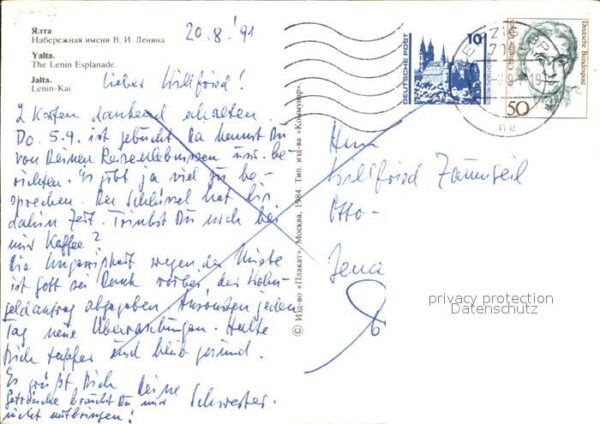 Ялта
Набережная имени В. И. Ленина
Yalta.
The Lenin Esplanade.
Jalta.
Lenin-Kai
20.8.'91
Lieber Willfried!
2 Karten dankend erhalten.
Do. 5.9. ist gebucht. Da kannst Du
von Deinen Reiseerlebnissen usw. be-
richten. Es gibt ja viel zu be-
sprechen. Der Schlüssel hat bis
dahin Zeit. Trinkst Du noch bei
mir Kaffee?
Die Ungewißheit wegen der Miete
ist Gott sei Dank vorbei, der Wohn-
geldantrag abgegeben. Ansonsten jeden
Tag neue Überraschungen. Halte
Dich tapfer und bleib gesund.
Es grüßt Dich Deine
Schwester.
Getränke brauchst Du mir
nicht mitbringen!
© Изд-во «Плакат», Москва, 1984. Тип. изд-ва «Коммунар».
DEUTSCHE POST
10
Deutsche Bundespost
50
Herrn
Willfried
Otto-
Jena
privacy protection
Datenschutz